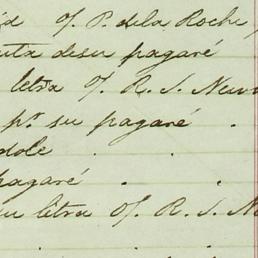 o/. P. dela Roche,
uta desu pagaré
letra o/. R. S. New
pr. su pagaré .
dole . .
pagaré . .
su létra o/. R. S. Ne